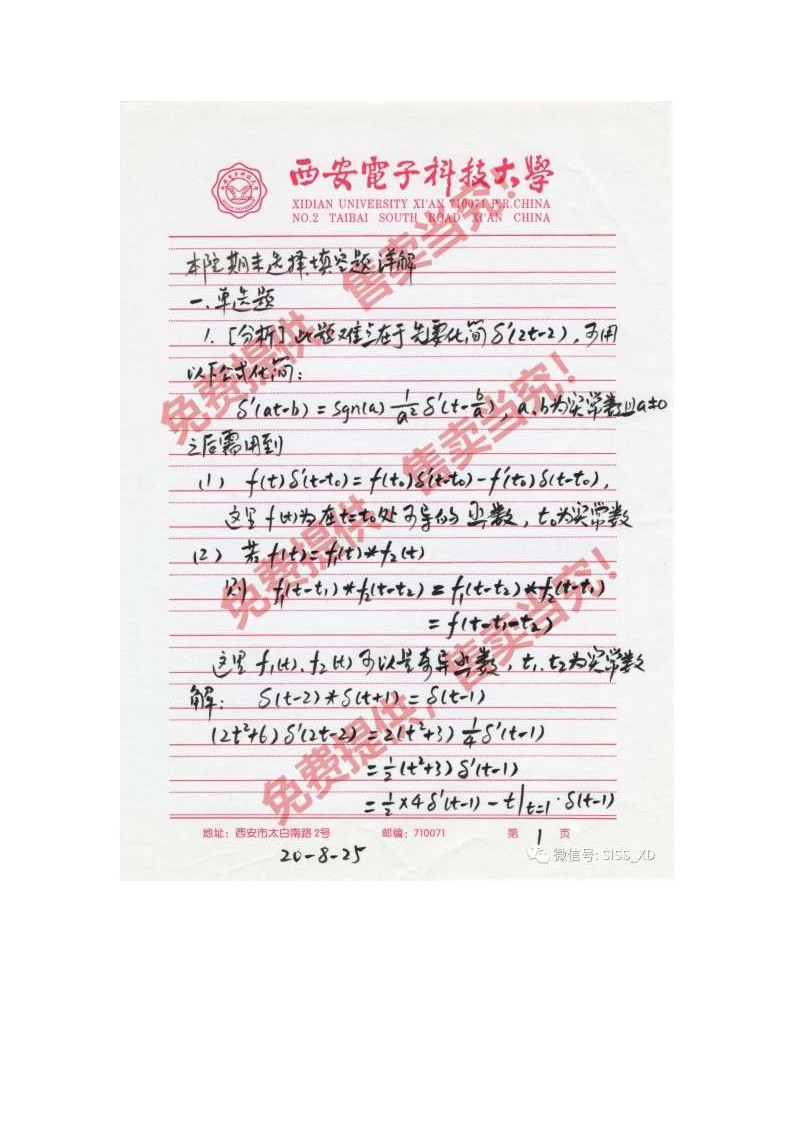 西安電子科技大學
XIDIAN UNIVERSITY XI'AN 710071 P.R.CHINA
NO.2 TAIBAI SOUTH ROAD XI'AN CHINA
本院期末选择填空题详解
一.单选题
1. [分析] 此题难点在于先要化简 δ'(2t-2), 可用
以下公式化简:
δ'(at-b) = sgn(a) 1/a² δ'(t-b/a), a、b为实常数且a≠0
之后需用到
(1) f(t)δ'(t-t₀) = f(t₀)δ'(t-t₀) - f'(t₀)δ(t-t₀),
这里f(t)为在t=t₀处可导的函数, t₀为实常数
(2) 若 f(t) = f₁(t)*f₂(t)
则 f₁(t-t₁)*f₂(t-t₂) = f₁(t-t₂)*f₂(t-t₁)
= f(t-t₁-t₂)
这里 f₁(t)、f₂(t) 可以是奇异函数, t₁、t₂为实常数
解: δ(t-2)*δ(t+1) = δ(t-1)
(2t²+6)δ'(2t-2) = 2(t²+3) 1/4 δ'(t-1)
= 1/2 (t²+3)δ'(t-1)
= 1/2 ×4δ'(t-1) - t|t=1 · δ(t-1)
地址: 西安市太白南路2号 邮编: 710071 第 1 页
20-8-25
微信号: SISS_XD
免费提供, 售卖当究!
免费提供, 售卖当究!
免费提供, 售卖当究!